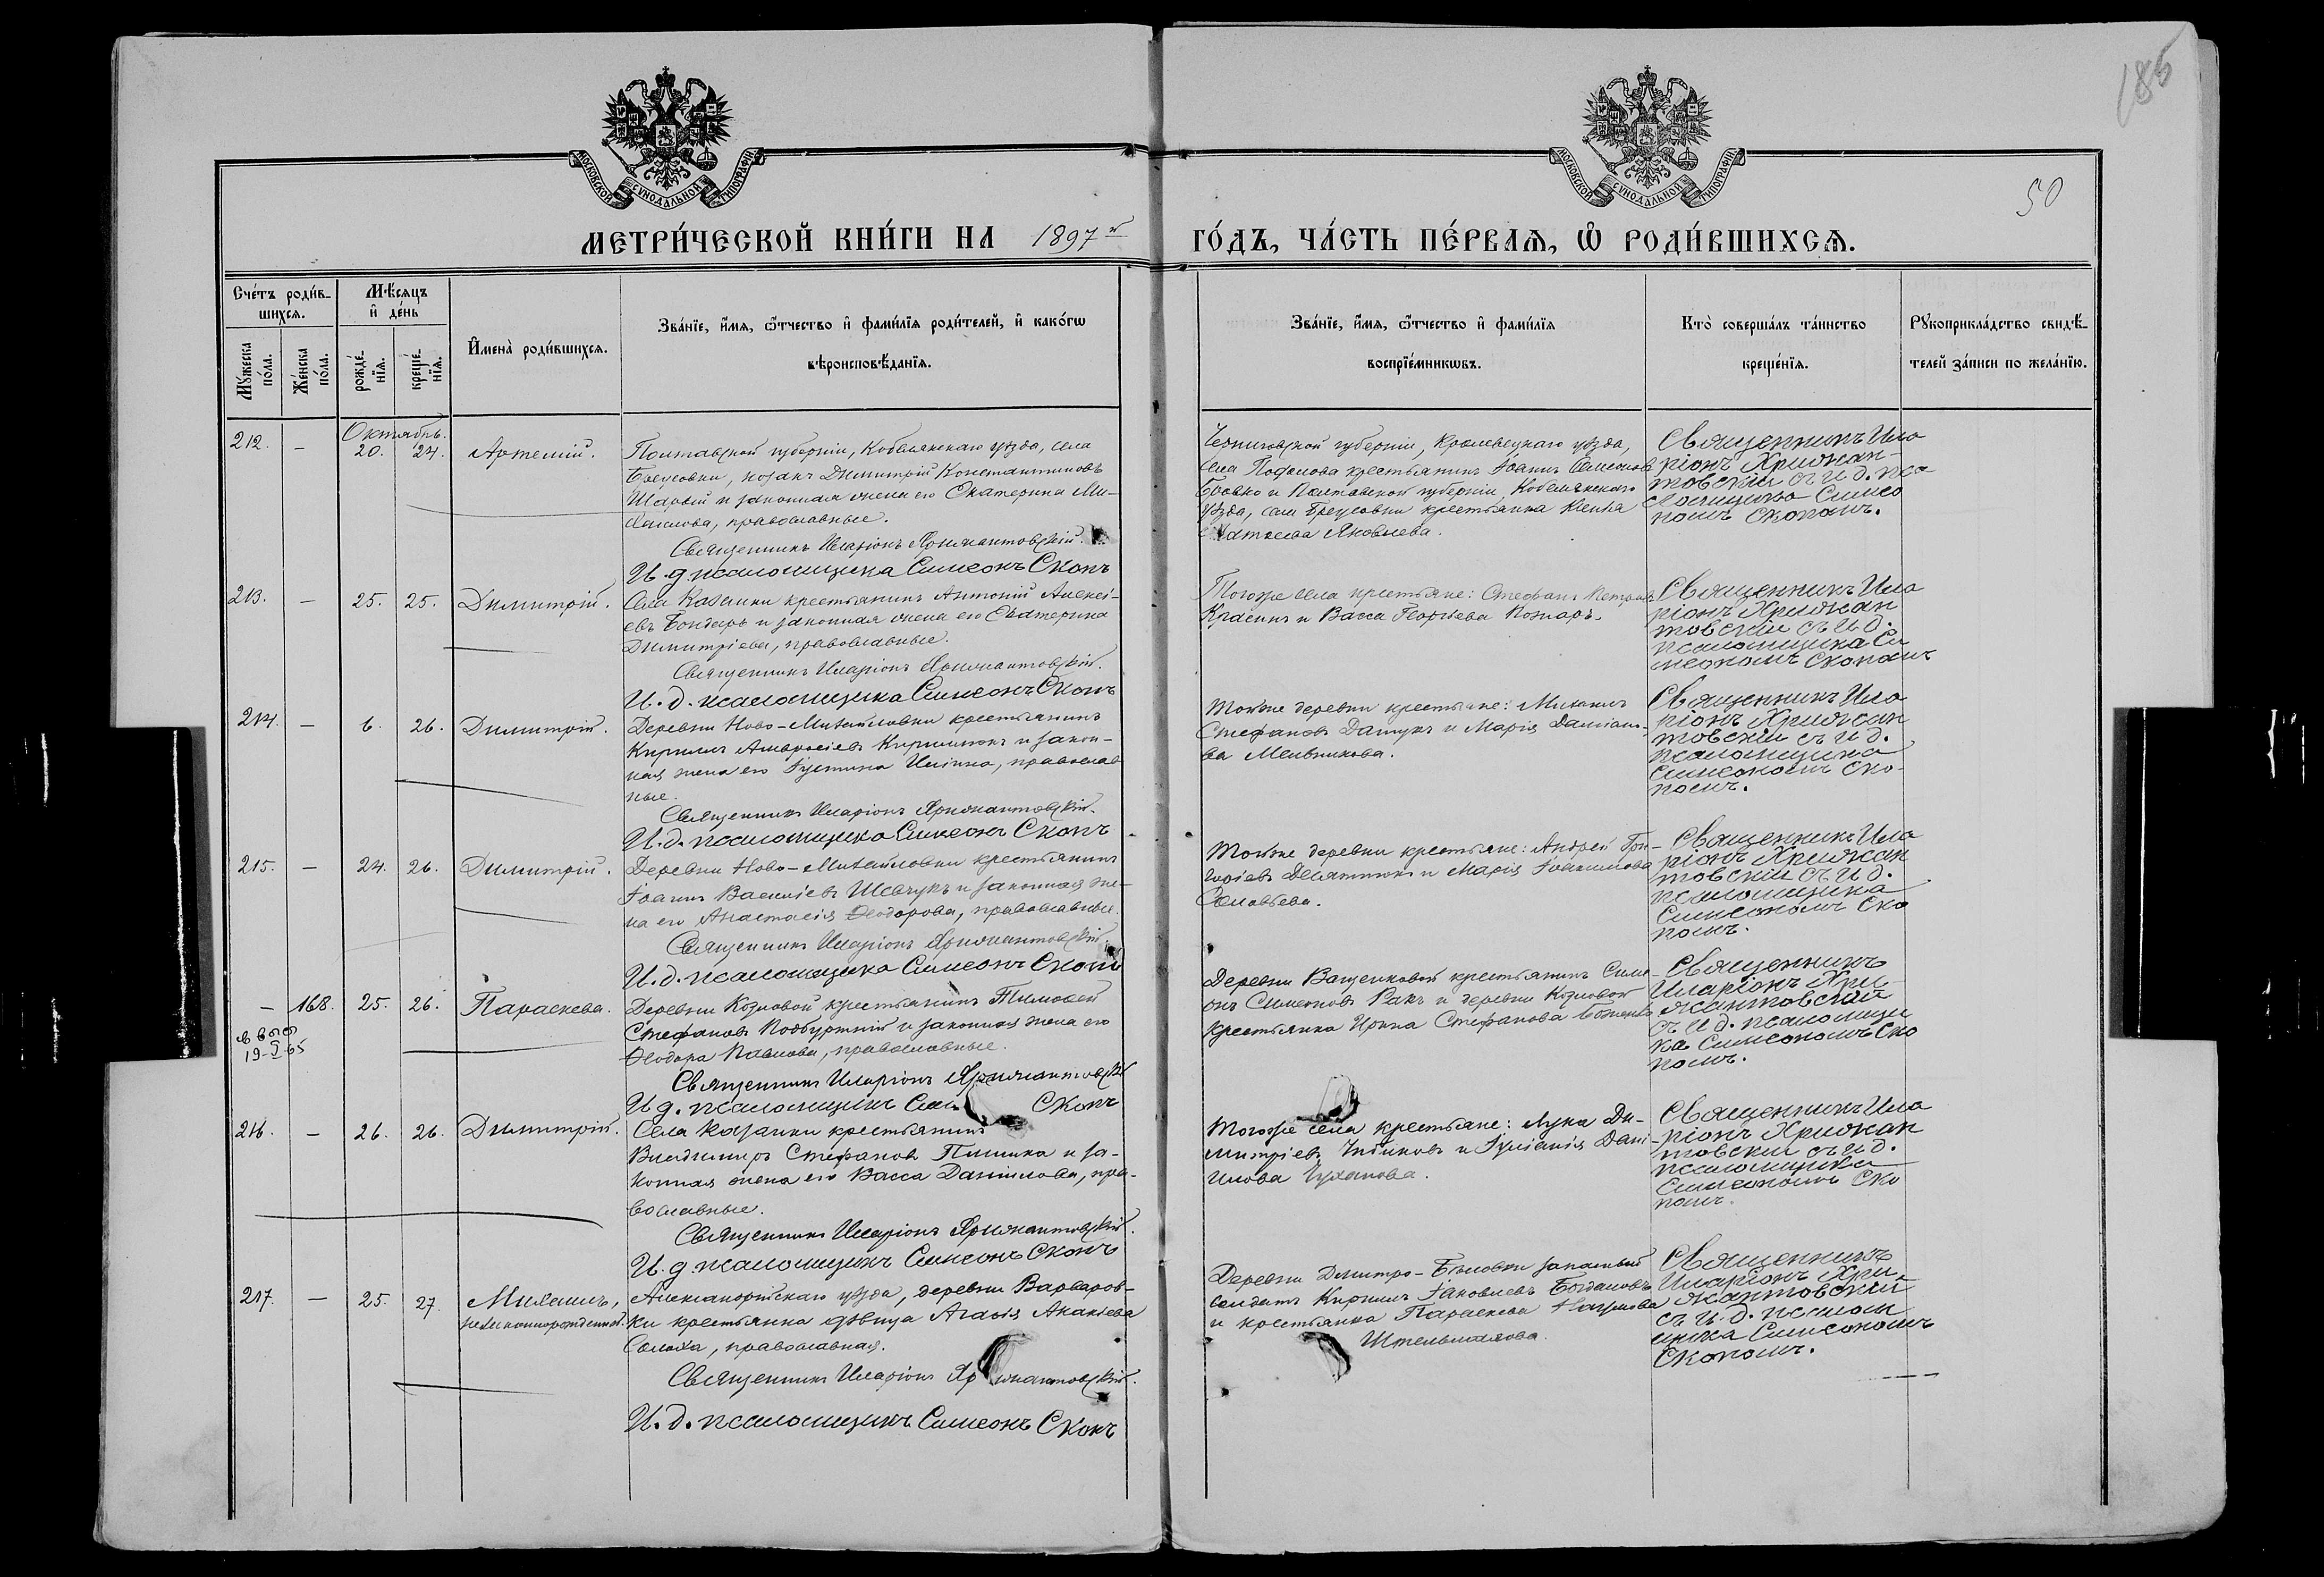 185
50
МОСКОВСКОЙ СУНОДАЛЬНОЙ ТИПОГРАФІИ
МОСКОВСКОЙ СУНОДАЛЬНОЙ ТИПОГРАФІИ
МЕТРИ́ЧЕСКОЙ КНИ́ГИ НА 1897 й ГО́ДЪ, ЧА́СТЬ ПЕ́РВАѦ, Ѡ РОДИ́ВШИХСѦ.
Сче́тъ роди́в-
шихсѧ.
Мꙋ́жеска по́ла.
Же́нска по́ла.
Мѣ́сѧцъ
и де́нь
рожде́-
нїѧ.
креще́-
нїѧ.
И҆мена̀ роди́вшихсѧ.
Зва́нїе, и҆́мѧ, ѻ҆́тчество и҆ фами́лїѧ роди́телей, и҆ како́гѡ
вѣроисповѣ́данїѧ.
Зва́нїе, и҆́мѧ, ѻ҆́тчество и҆ фами́лїѧ
воспрїе́мникѡвъ.
Кто̀ соверша́лъ та́инство
креще́нїѧ.
Рꙋкоприкла́дство свидѣ́-
телей за́писи по жела́нїю.
Октябрь.
212. — 20. 24. Артемій.
Полтавской губерніи, Кобелякскаго уѣзда, села
козакъ Димитрій Константиновъ
и законная жена его Екатерина Ми-
хаилова, православные.
Священникъ Иларіонъ Хрижантовскій.
И. д. псаломщика Симеонъ Скопъ
Черниговской губерніи, Кролевецкаго уѣзда,
села крестьянинъ Іоаннъ Симеоновъ
и Полтавской губерніи, Кобелякскаго
уѣзда, села крестьянка Ксенія
Яковлева.
Священникъ Ила
ріонъ Хрижан-
товскій съ И. д. пса
ломщика Симео
номъ Скопомъ.
213. — 25. 25. Димитрій.
Села Казанки крестьянинъ Антоній Алексі-
евъ Бондарь и законная жена его Екатерина
Димитріева, православные.
Священникъ Иларіонъ Хрижантовскій.
И. д. псаломщика Симеонъ Скопъ
Тогоже села крестьяне: Стефанъ Петровъ
Красинъ и Васса Георгіева
Священникъ Ила
ріонъ Хрижан
товскій съ И. д.
псаломщика Си
меономъ Скопомъ
214. — 6. 26. Димитрій.
Деревни Ново-Михайловки крестьянинъ
Кириллъ Амвросіевъ и закон-
ная жена его Іустина Ильина, православ
ные.
Священникъ Иларіонъ Хрижантовскій.
И. д. псаломщика Симеонъ Скопъ
Тойже деревни крестьяне: Михаилъ
Стефановъ и Марія Даміано-
ва Мельникова.
Священникъ Ила
ріонъ Хрижан
товскій съ И. д.
псаломщика
Симеономъ Ско-
помъ.
215. — 24. 26. Димитрій.
Деревни Ново-Михайловки крестьянинъ
Іоаннъ Василіевъ Шевчукъ и законная же-
на его Анастасія Ѳеодорова, православные.
Священникъ Иларіонъ Хрижантовскій.
И. д. псаломщика Симеонъ Скопъ
Тойже деревни крестьяне: Андрей Гри-
горіевъ и Марія Іоакимова
Соловьева.
Священникъ Ила
ріонъ Хрижан
товскій съ И. д.
псаломщика
Симеономъ Ско
помъ.
— 168. 25. 26. Параскева.
19-I-65
Деревни Козловой крестьянинъ Тимоѳей
Стефановъ и законная жена его
Ѳеодора Павлова, православные.
Священникъ Иларіонъ Хрижантовскій
И. д. псаломщикъ Скопъ
Деревни Ващенковой крестьянинъ Симе-
онъ Симеоновъ Ракъ и деревни Козловой
крестьянка Ирина Стефанова
Священникъ
Иларіонъ Хри-
жантовскій
съ И. д. псаломщи
ка Симеономъ Ско
помъ.
216. — 26. 26. Димитрій.
Села Казанки крестьянинъ
Владимиръ Стефановъ и за-
конная жена его Васса Даніилова, пра-
вославные.
Священникъ Иларіонъ Хрижантовскій.
И. д. псаломщикъ Симеонъ Скопъ
Тогоже села крестьяне: Лука Ди-
митріевъ и Іуліанія Дані-
илова
Священникъ Ила
ріонъ Хрижан
товскій съ И. д.
псаломщика
Симеономъ Ско
помъ.
217. — 25. 27. Михаилъ,
незаконнорожденный.
Александрійскаго уѣзда, деревни Варваров-
ки крестьянка дѣвица Агаѳія Акакіева
Солоха, православная.
Священникъ Иларіонъ Хрижантовскій.
И. д. псаломщикъ Симеонъ Скопъ
Деревни Дмитро-Бѣловки запасный
солдатъ Кириллъ Іаковлевъ Богдановъ
и крестьянка Параскева Наумова
Штельмахова.
Священникъ
Иларіонъ Хри
жантовскій
съ И. д. псалом
щика Симеономъ
Скопомъ.